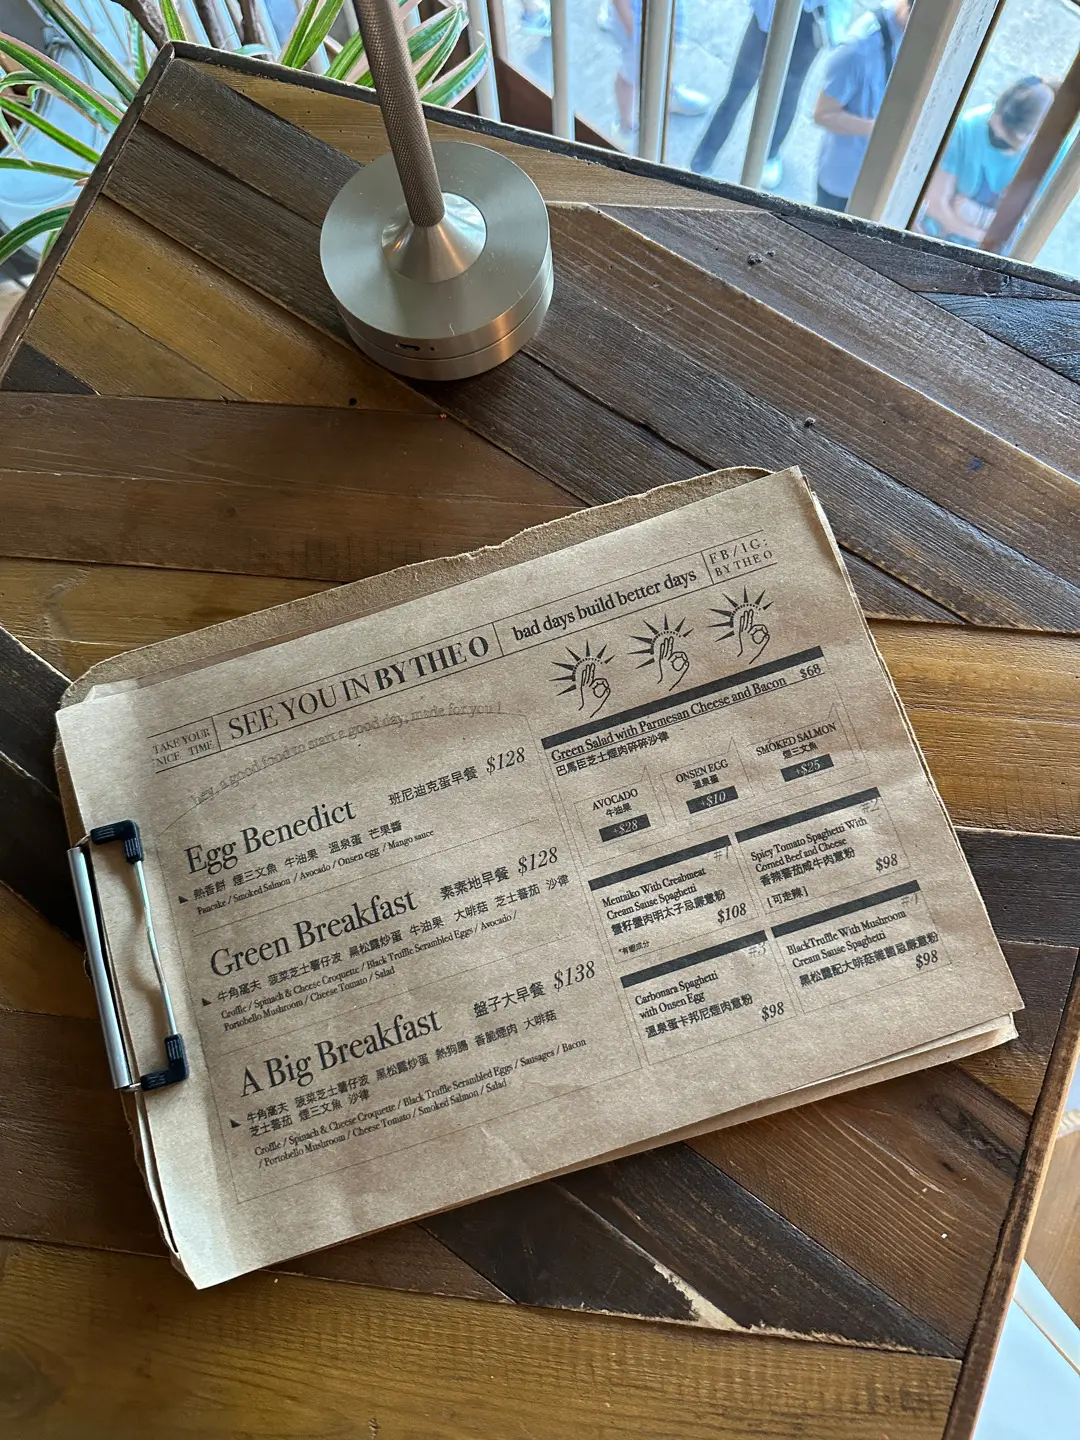 TAKE YOUR
NICE TIME
SEE YOU IN BY THE O
bad days build better days
FB/IG:
BY THE O
hey, a good food to start a good day, made for you !
Egg Benedict 班尼迪克蛋早餐 $128
熱香餅 煙三文魚 牛油果 溫泉蛋 芒果醬
Pancake / Smoked Salmon / Avocado / Onsen egg / Mango sauce
Green Breakfast 素素地早餐 $128
牛角窩夫 菠菜芝士薯仔波 黑松露炒蛋 牛油果 大啡菇 芝士蕃茄 沙律
Croffle / Spinach & Cheese Croquette / Black Truffle Scrambled Eggs / Avocado /
Portobello Mushroom / Cheese Tomato / Salad
A Big Breakfast 盤子大早餐 $138
牛角窩夫 菠菜芝士薯仔波 黑松露炒蛋 熱狗腸 香脆煙肉 大啡菇
芝士蕃茄 煙三文魚 沙律
Croffle / Spinach & Cheese Croquette / Black Truffle Scrambled Eggs / Sausages / Bacon
/ Portobello Mushroom / Cheese Tomato / Smoked Salmon / Salad
Green Salad with Parmesan Cheese and Bacon $68
巴馬臣芝士煙肉碎碎沙律
AVOCADO
牛油果
+$28
ONSEN EGG
溫泉蛋
+$10
SMOKED SALMON
煙三文魚
+$25
#1
Mentaiko With Creabmeat
Cream Sause Spaghetti
蟹籽蟹肉明太子忌廉意粉
$108
#2
Spicy Tomato Spaghetti With
Corned Beef and Cheese
香辣蕃茄咸牛肉意粉
[可走辣]
$98
#3
Carbonara Spaghetti
with Onsen Egg
溫泉蛋卡邦尼煙肉意粉
$98
#4
BlackTruffle With Mushroom
Cream Sause Spaghetti
黑松露配大啡菇雜菌忌廉意粉
$98